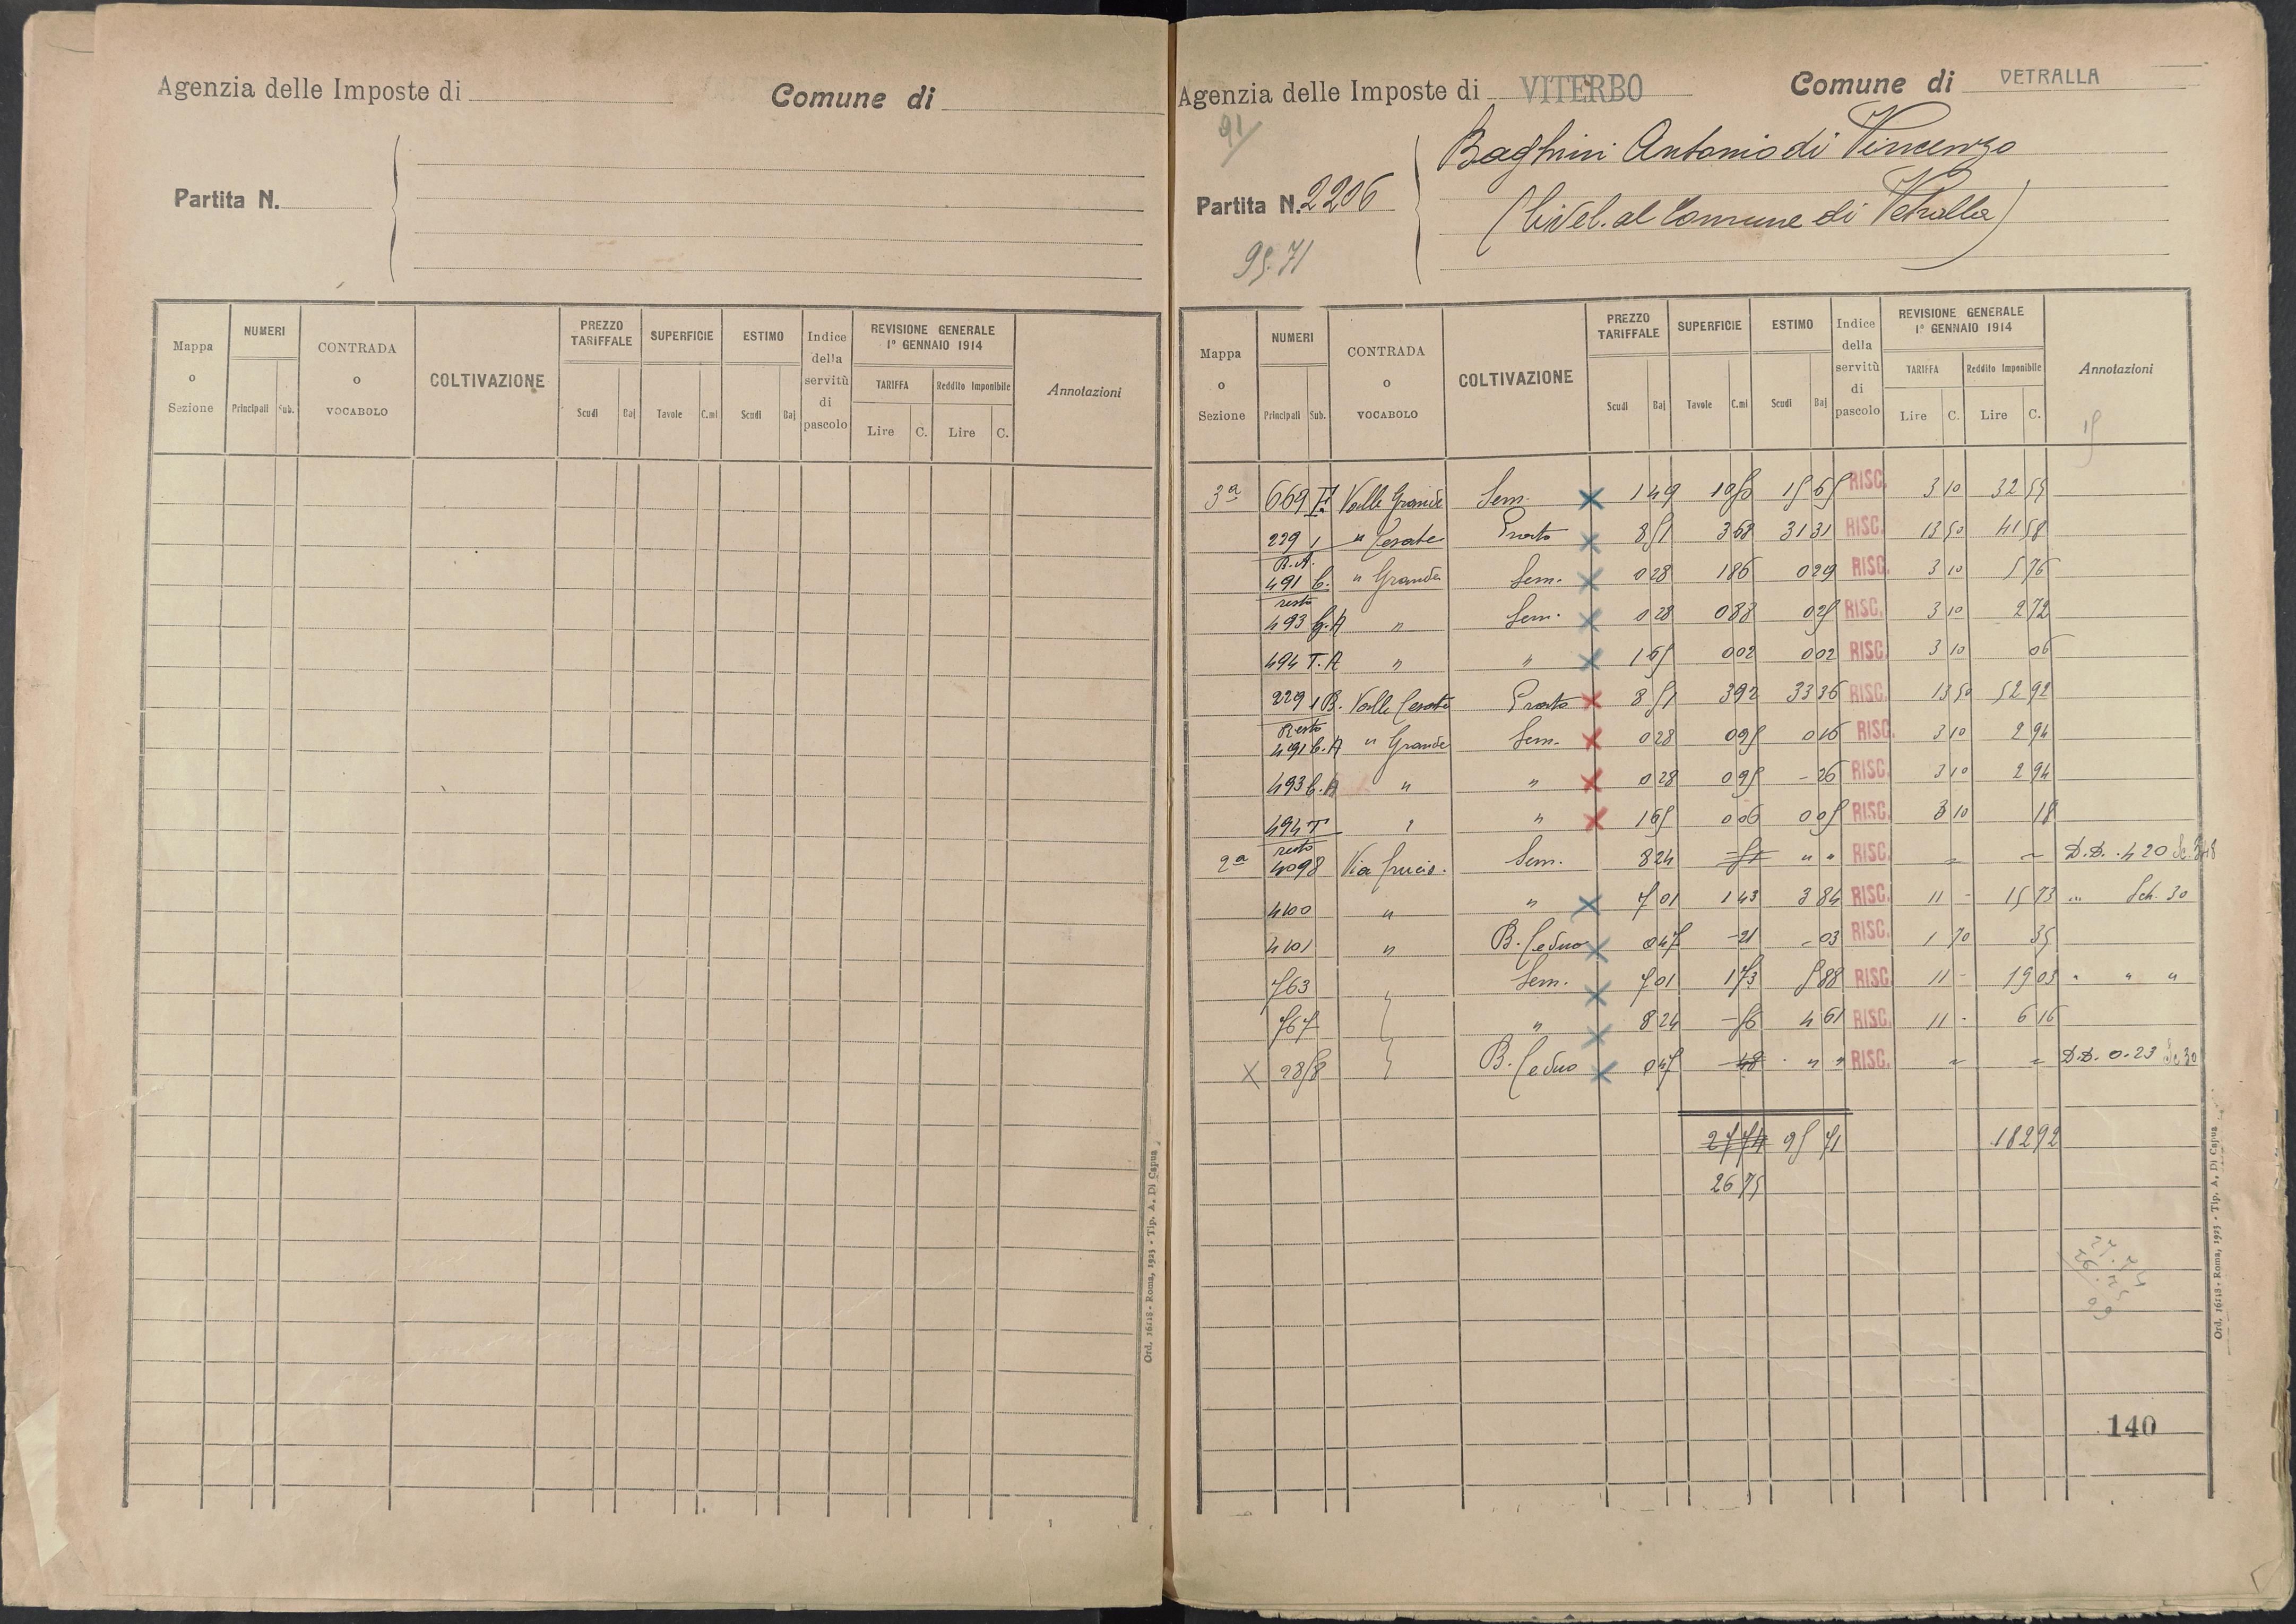 Agenzia delle Imposte di
Comune di
Partita N.
Mappa o Sezione
NUMERI
Principali Sub.
CONTRADA o VOCABOLO
COLTIVAZIONE
PREZZO TARIFFALE
Scudi Baj
SUPERFICIE
Tavole C.mi
ESTIMO
Scudi Baj
Indice della servitù di pascolo
REVISIONE GENERALE
1° GENNAIO 1914
TARIFFA
Reddito Imponibile
Lire C. Lire C.
Annotazioni
Ord. 16118 - Roma, 1923 - Tip. A. Di Capua
Agenzia delle Imposte di VITERBO
Comune di VETRALLA
91
Baghini Antonio di Vincenzo
Partita N. 2206
(livel. al Comune di Vetralla)
95.71
Mappa o Sezione
NUMERI
Principali Sub.
CONTRADA o VOCABOLO
COLTIVAZIONE
PREZZO TARIFFALE
Scudi Baj
SUPERFICIE
Tavole C.mi
ESTIMO
Scudi Baj
Indice della servitù di pascolo
REVISIONE GENERALE
1° GENNAIO 1914
TARIFFA
Reddito Imponibile
Lire C. Lire C.
Annotazioni
15
3ª 669 Valle Grande Sem. 1 49 10 50 15 65 RISC. 3 10 32 55
229 1 " Cesate Prato 8 51 3 68 31 31 RISC. 13 50 41 58
R.A.
491 C. " Grande Sem. 0 28 1 86 0 29 RISC. 3 10 5 76
resto
493 G.A " Sem. 0 28 0 88 0 25 RISC. 3 10 2 72
494 T.A " " 1 65 0 02 0 02 RISC. 3 10 06
229 1 B. Valle Cesate Prato 8 51 3 92 33 36 RISC. 13 50 52 92
Resto
491 C.A " Grande Sem. 0 28 0 95 0 16 RISC. 3 10 2 94
493 C.A " " 0 28 0 95 - 26 RISC. 3 10 2 94
494 T " 1 65 0 06 0 05 RISC. 3 10 18
resto
2ª 4098 Via Crucis. Sem. 8 24 - 51 " " RISC. D.D. . 4 20
4100 " " 7 01 1 43 3 84 RISC. 11 - 15 73 Sch. 30
4101 " B. Ceduo 0 47 - 21 - 03 RISC. 1 70 35
763 Sem. 7 01 1 73 5 88 RISC. 11 - 19 03 " " "
767 " 8 24 - 56 4 61 RISC. 11 - 6 16
X 2858 B. Ceduo 0 47 - 48 " " RISC. D.D. 0.23 Sc 30
27 74 95 71 182 92
26 75
27.74
26.75
0 99
140
Ord. 16118 - Roma, 1923 - Tip. A. Di Capua